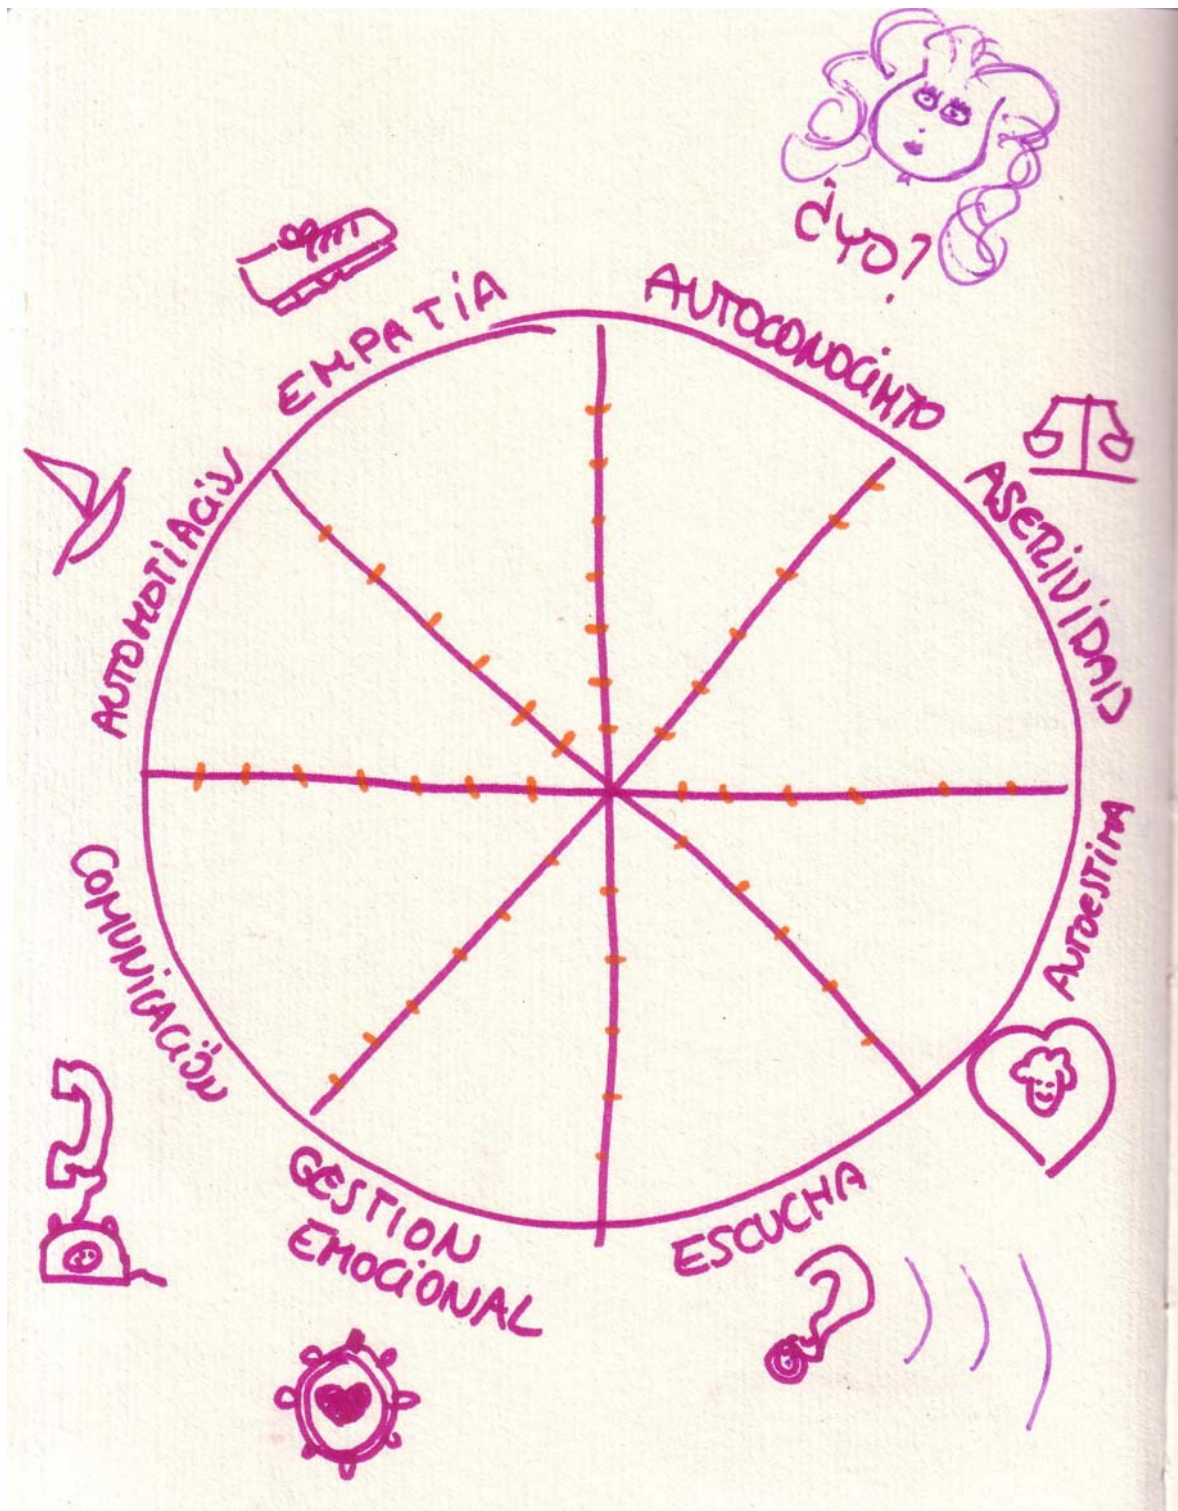 ¿YO?
EMPATÍA
AUTOCONOCIMTO
ASERIVIDAD
AUTOESTIMA
ESCUCHA
GESTION
EMOCIONAL
COMUNICACIÓN
AUTOMOTIACIÓN